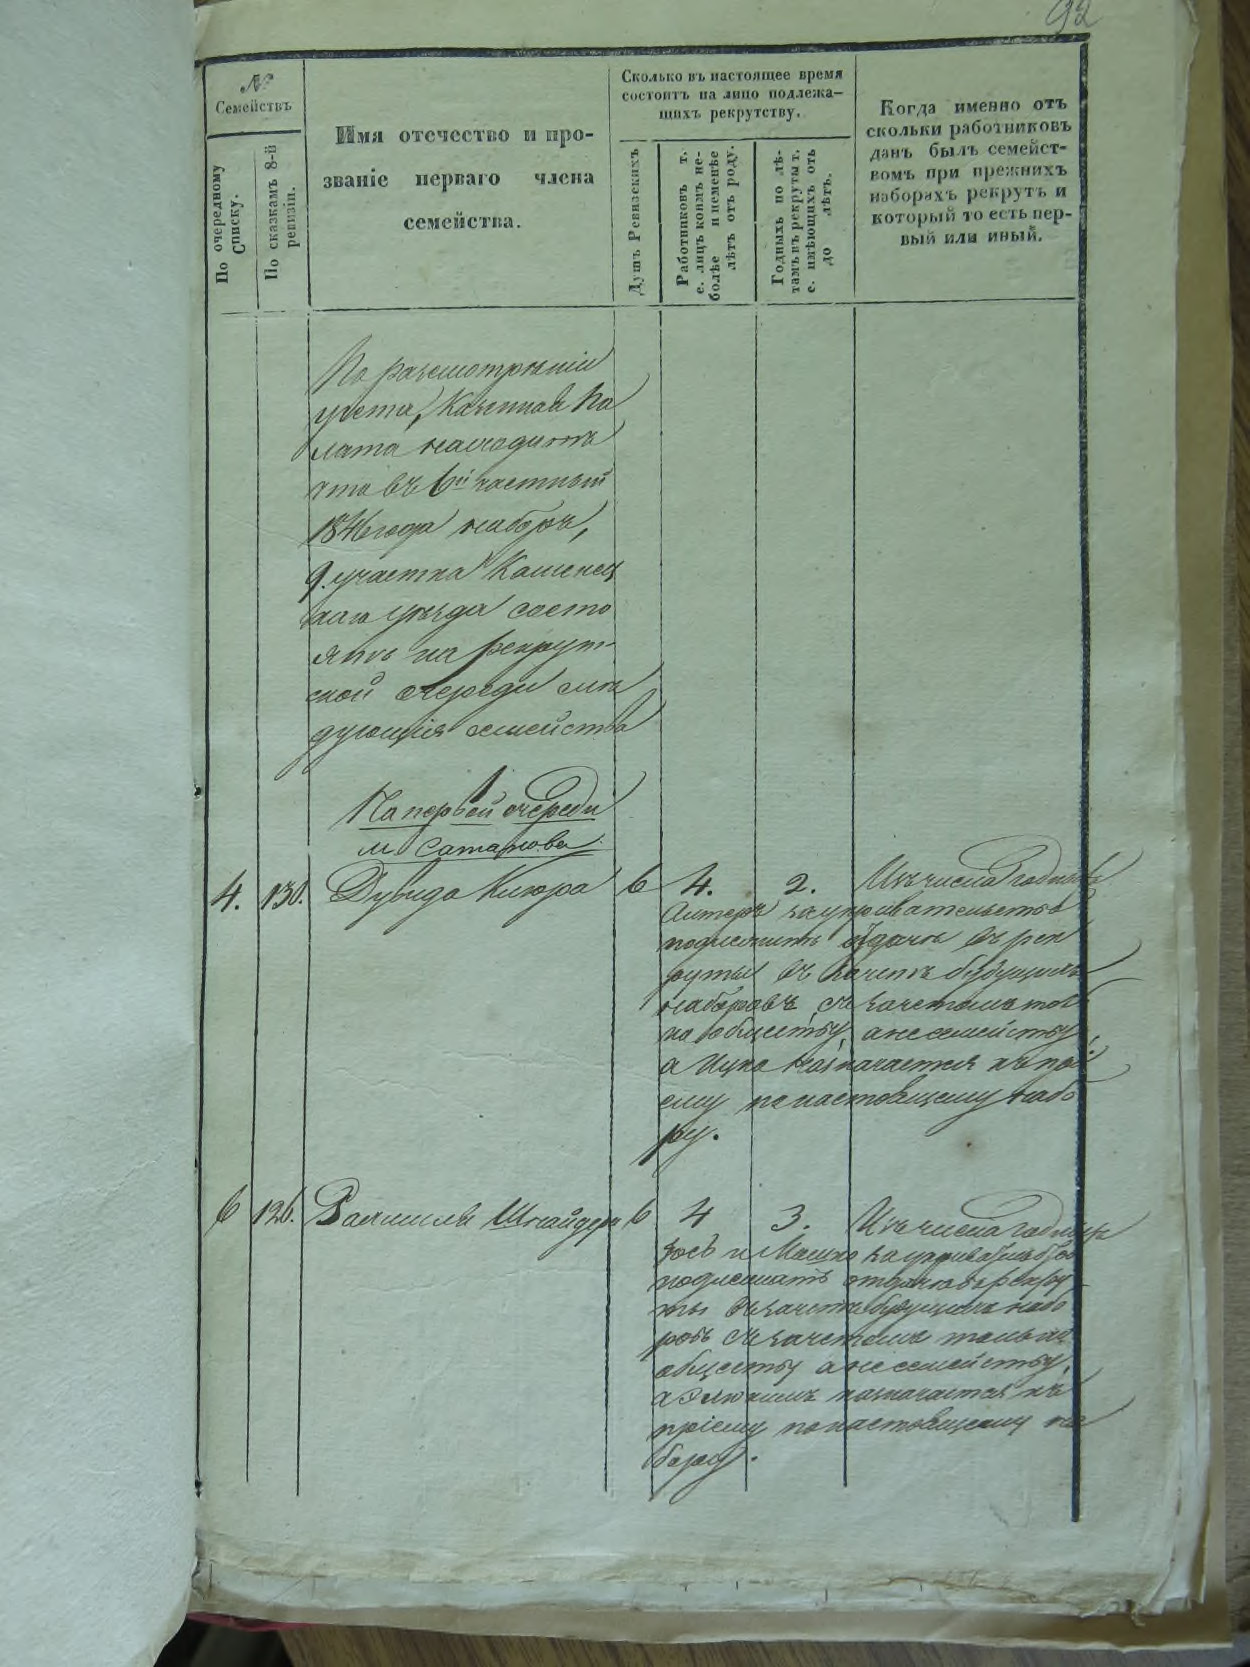 92
№
Семействъ
По очередному
Списку.
По сказкамъ 8-й
ревизіи.
Имя отечество и про-
званіе перваго члена
семейства.
Сколько въ настоящее время
состоитъ на лицо подлежа-
щихъ рекрутству.
Душъ Ревизскихъ
Работниковъ т.
е. лицъ коимъ не-
болѣе и неменѣе
лѣтъ отъ роду.
Годныхъ по лѣ-
тамъ въ рекруты т.
е. имѣющихъ отъ
до лѣтъ.
Когда именно отъ
скольки работниковъ
данъ былъ семейст-
вомъ при прежнихъ
наборахъ рекрутъ и
который то есть пер-
вый или иный.
По разсмотрѣнiи
учета, Казенная Па
лата находитъ
что въ 6й частный
1846 года наборъ,
9. участка Каменец
каго уѣзда состо
ятъ на рекрут-
ской очереди слѣ
дующiя семейства
На первой очереди
м Сатанова
4. 130. Дувида Кизюра 6 4. 2. Изъ числа годныхъ
за укривательство
подлежитъ отдачѣ въ рек
руты въ зачетъ будущихъ
наборовъ съ зачетомъ толь
ко обществу а не семейству,
а Ицко назначается къ прі
ему по настоящему набо
ру.
6 126. Шнайдера 6 4 3. Изъ числа годныхъ
Іось и Мошко за укривательство
подлежатъ отдачѣ въ рекру-
ты въ зачетъ будущихъ набо
ровъ съ зачетомъ только
обществу а не семейству,
а назначается къ
пріему по настоящему на
бору.